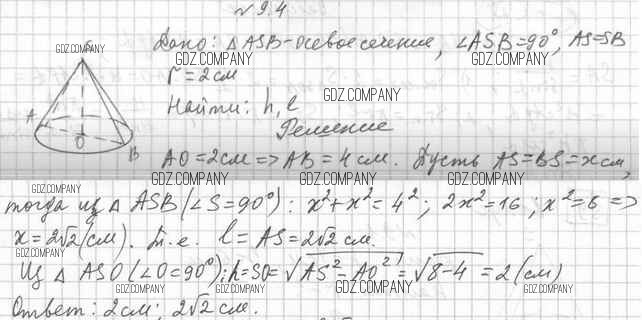 №9.4
S
GDZ.COMPANY
Дано: △ASB-осевое сечение, ∠ASB=90°, AS=SB
GDZ.COMPANY GDZ.COMPANY GDZ.COMPANY
r=2см
GDZ.COMPANY
Найти: h, l
A
Решение
O
B
AO=2см=>AB=4см. Пусть AS=BS=xсм,
GDZ.COMPANY GDZ.COMPANY GDZ.COMPANY GDZ.COMPANY
тогда из △ASB(∠S=90°): x²+x²=4²; 2x²=16; x²=6 =>
GDZ.COMPANY
x=2√2(см). Т.е. l=AS=2√2 см.
GDZ.COMPANY
Из △ASO(∠O=90°); h=SO=√AS²-AO²=√8-4=2(см)
GDZ.COMPANY GDZ.COMPANY GDZ.COMPANY GDZ.COMPANY
Ответ: 2см; 2√2 см.